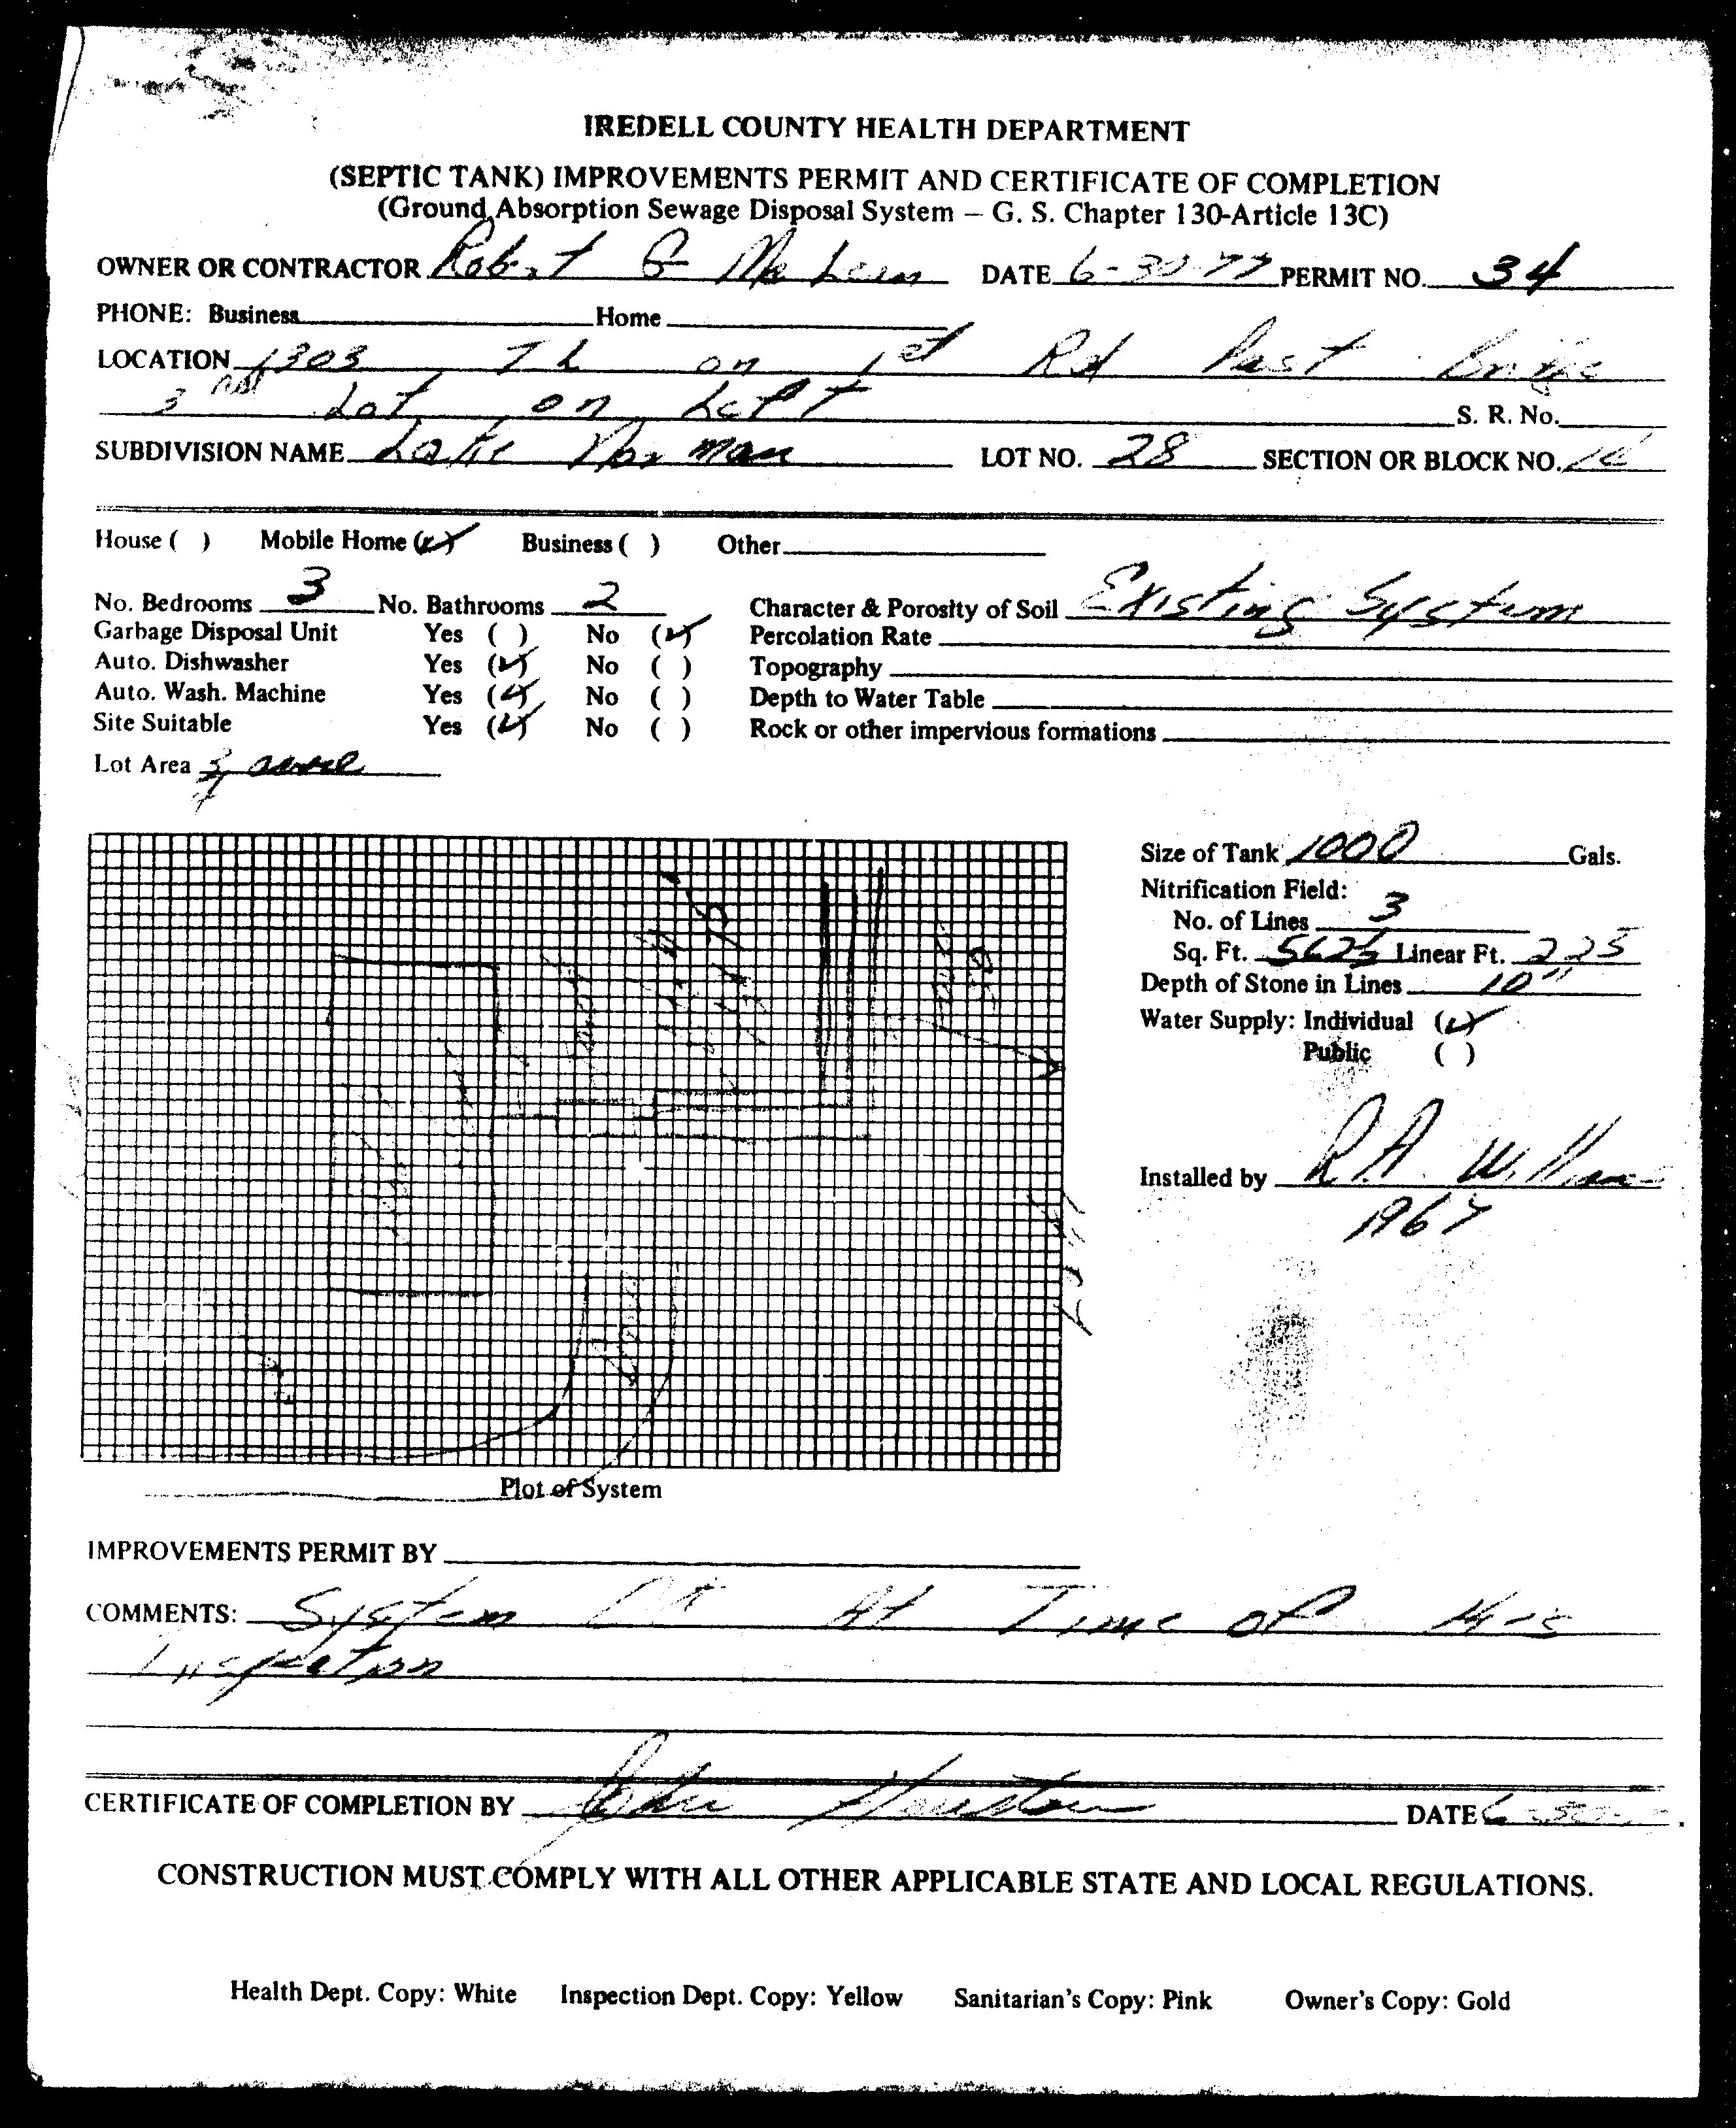 IREDELL COUNTY HEALTH DEPARTMENT
(SEPTIC TANK) IMPROVEMENTS PERMIT AND CERTIFICATE OF COMPLETION
(Ground Absorption Sewage Disposal System – G. S. Chapter 130-Article 13C)
OWNER OR CONTRACTOR Robert G DATE 6-30-77 PERMIT NO. 34
PHONE: Business Home
LOCATION 1303 TL on 1st Rd Past Bridge
3rd Lot on Left S. R. No.
SUBDIVISION NAME Lake Norman LOT NO. 28 SECTION OR BLOCK NO.
House ( ) Mobile Home (✓) Business ( ) Other
No. Bedrooms 3 No. Bathrooms 2 Character & Porosity of Soil Existing System
Garbage Disposal Unit Yes ( ) No (✓) Percolation Rate
Auto. Dishwasher Yes (✓) No ( ) Topography
Auto. Wash. Machine Yes (✓) No ( ) Depth to Water Table
Site Suitable Yes (✓) No ( ) Rock or other impervious formations
Lot Area 3/4 acre
Size of Tank 1000 Gals.
Nitrification Field:
No. of Lines 3
Sq. Ft. 562½ Linear Ft. 225
Depth of Stone in Lines 10"
Water Supply: Individual (✓)
Public ( )
Installed by R.A. Williams
1967
Plot of System
IMPROVEMENTS PERMIT BY
COMMENTS: System OK At Time of This
Inspection
CERTIFICATE OF COMPLETION BY John Houston DATE 6-30-
CONSTRUCTION MUST COMPLY WITH ALL OTHER APPLICABLE STATE AND LOCAL REGULATIONS.
Health Dept. Copy: White Inspection Dept. Copy: Yellow Sanitarian's Copy: Pink Owner's Copy: Gold